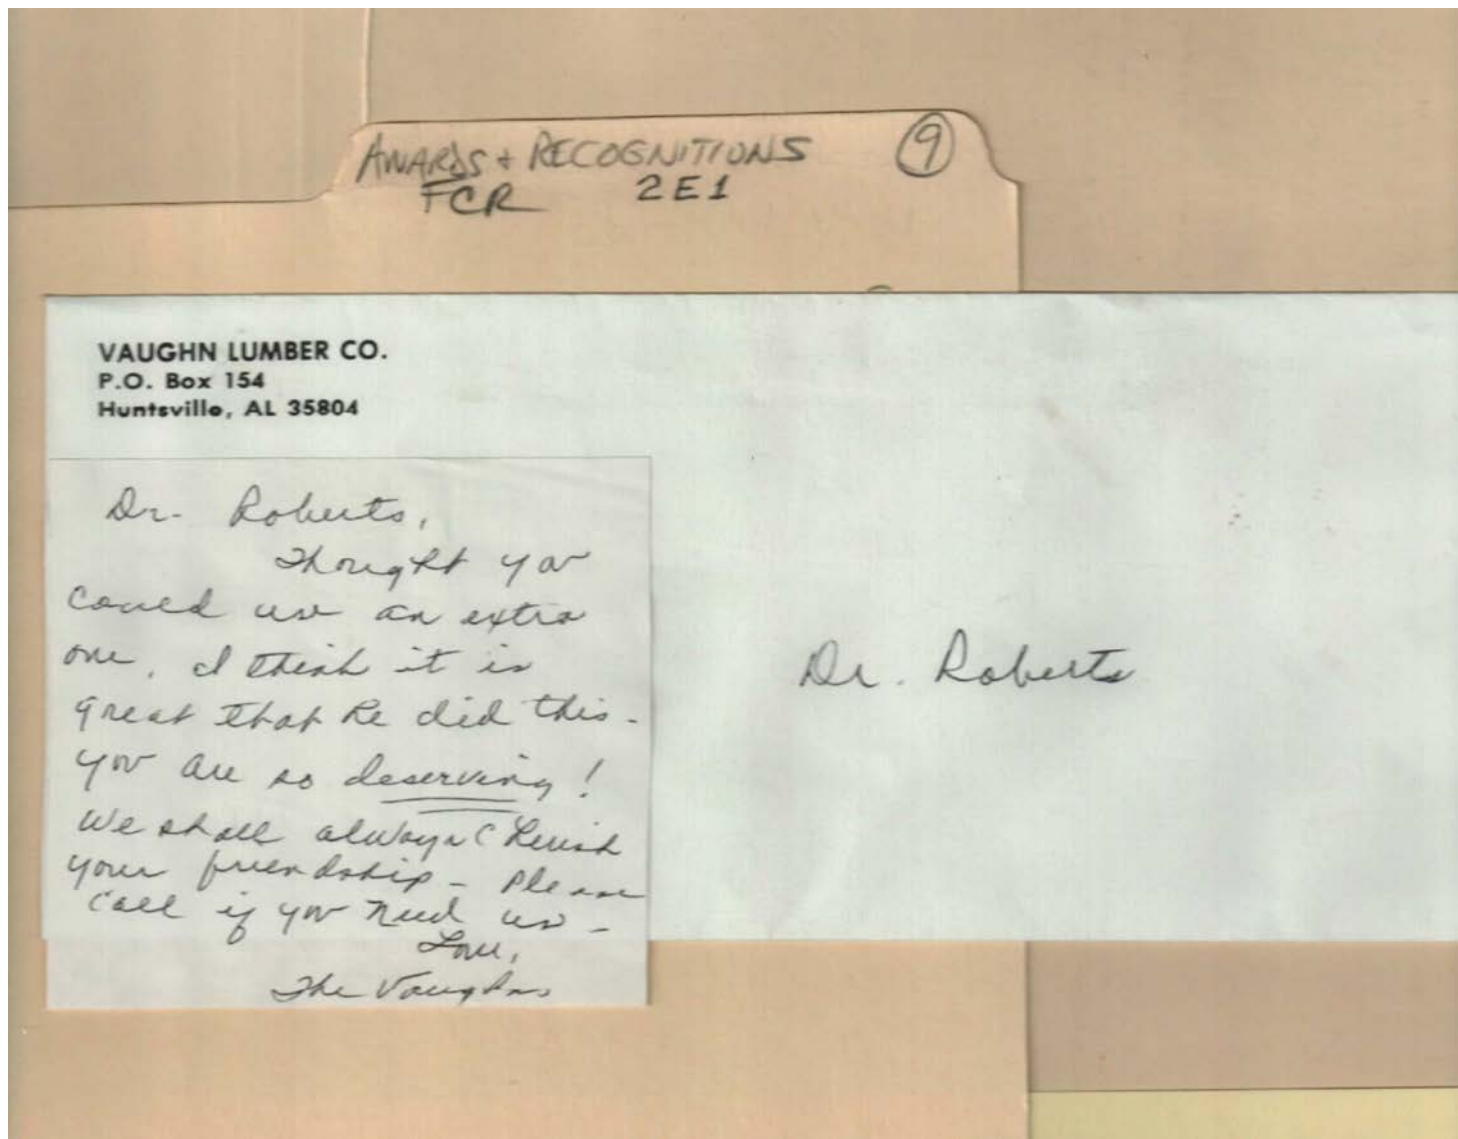 AWARDS + RECOGNITIONS 9
FCR 2E1
VAUGHN LUMBER CO.
P.O. Box 154
Huntsville, AL 35804
Dr. Roberts,
Thought you
could use an extra
one. I think it is
great that he did this -
you are so deserving!
We shall always cherish
your friendship - Please
call if you need us -
Love,
The Vaughns
Dr. Roberts